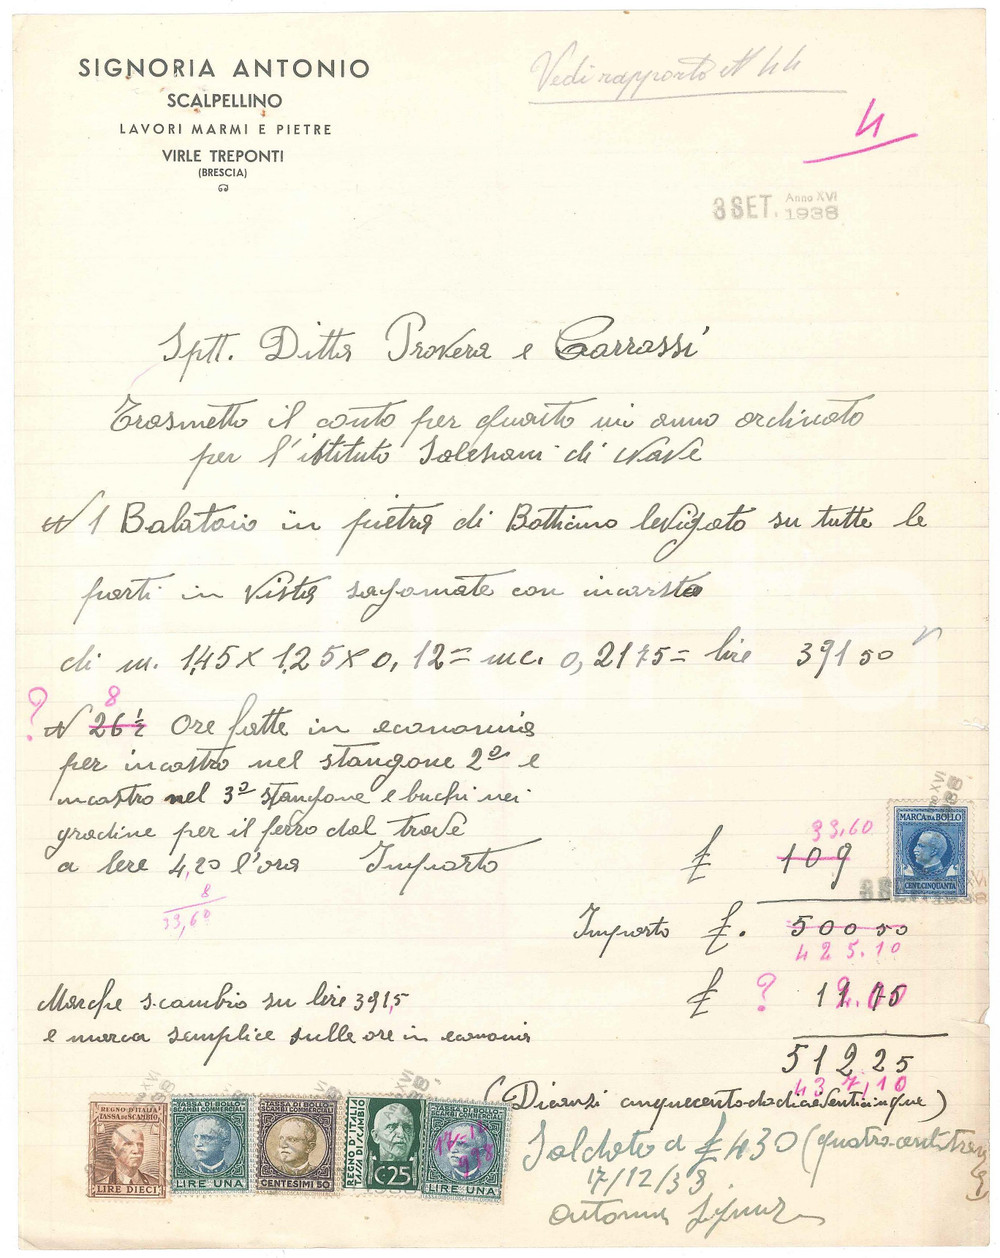 SIGNORIA ANTONIO
SCALPELLINO
LAVORI MARMI E PIETRE
VIRLE TREPONTI
(BRESCIA)
Vedi rapporto N 44
4
3 SET. Anno XVI 1938
Sptt. Ditta Provera e Carrassi
Trasmetto il conto per quanto mi anno ordinato
per l'istituto Salesiani di Nave
N 1 Balatoio in pietra di Botticino levigato su tutte le
parti in vista sagomate con incastro
di m. 1,45 x 1,25 x 0,12 = mc. 0,2175 = lire 391 50
? 8
N 26 1/2 Ore fatte in economia
per incastro nel stangone 2º e
incastro nel 3º stangone e buchi nei
gradine per il ferro dal trave
33,60
a lire 4,20 l'ora Importo £ 109
8
33,60
MARCA DA BOLLO
CENT. CINQUANTA
Importo £. 500 50
425.10
Marche scambio su lire 391,5 £ ? 11 75
2.00
e marca semplice sulle ore in economia
512 25
437,10
(Dicensi cinquecentododici e venticinque)
Saldato a £ 430 (quattrocentotrenta
17/12/38
Antonio
REGNO D'ITALIA
TASSA DI SCAMBIO
LIRE DIECI
TASSA DI BOLLO
SCAMBI COMMERCIALI
LIRE UNA
TASSA DI BOLLO
SCAMBI COMMERCIALI
CENTESIMI 50
REGNO D'ITALIA
TASSA DI SCAMBIO
C 25
TASSA DI BOLLO
SCAMBI COMMERCIALI
LIRE UNA